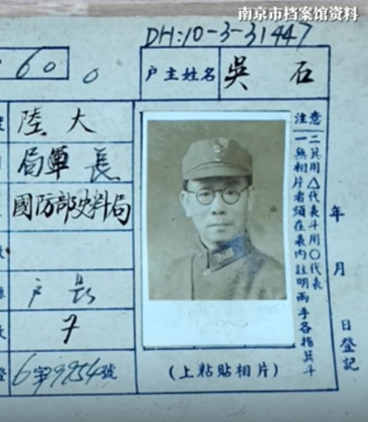 南京市档案馆资料
DH:10-3-31447
600
户主姓名
吳石
陸大
局單長
國防部史料局
户長
(上粘貼相片)
注意
一無相片者須在表内註明兩手各指箕斗
二箕用△代表斗用○代表
年月日登記